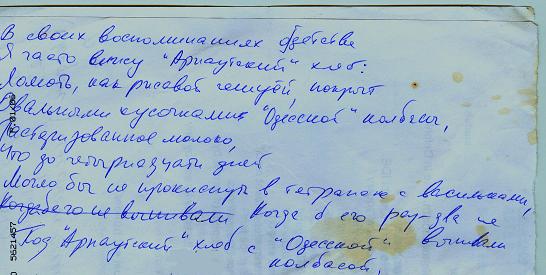 В своих воспоминаниях о детстве
Я часто вижу "Арнаутский" хлеб:
Ломоть, как рисовой чешуёй, покрыт
Овальными кусочками "Одесской" колбасы,
Пастеризованное молоко,
Что до четырнадцати дней
Могло бы не прокиснуть в тетрапаке с васильками,
Когда б его не выпивали Когда б его раз-два не
Под "Арнаутский" хлеб с "Одесской" выпивали
колбасой,
5621457